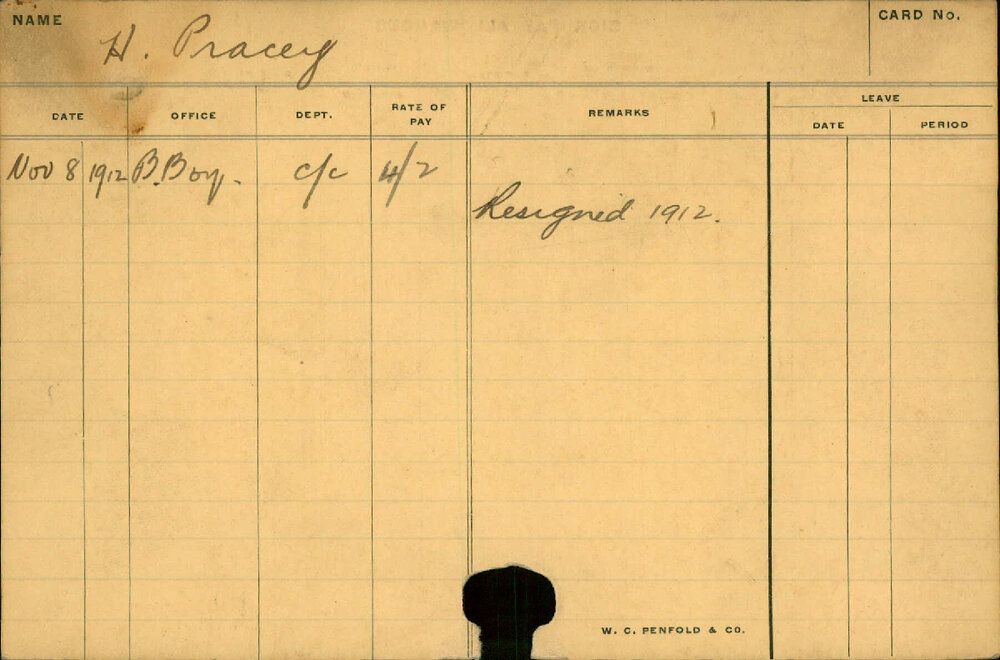 NAME H. Pracey CARD No.
DATE OFFICE DEPT. RATE OF PAY REMARKS LEAVE
DATE PERIOD
Nov 8 1912 B. Boy. c/c 4/2
Resigned 1912.
W. C. PENFOLD & CO.